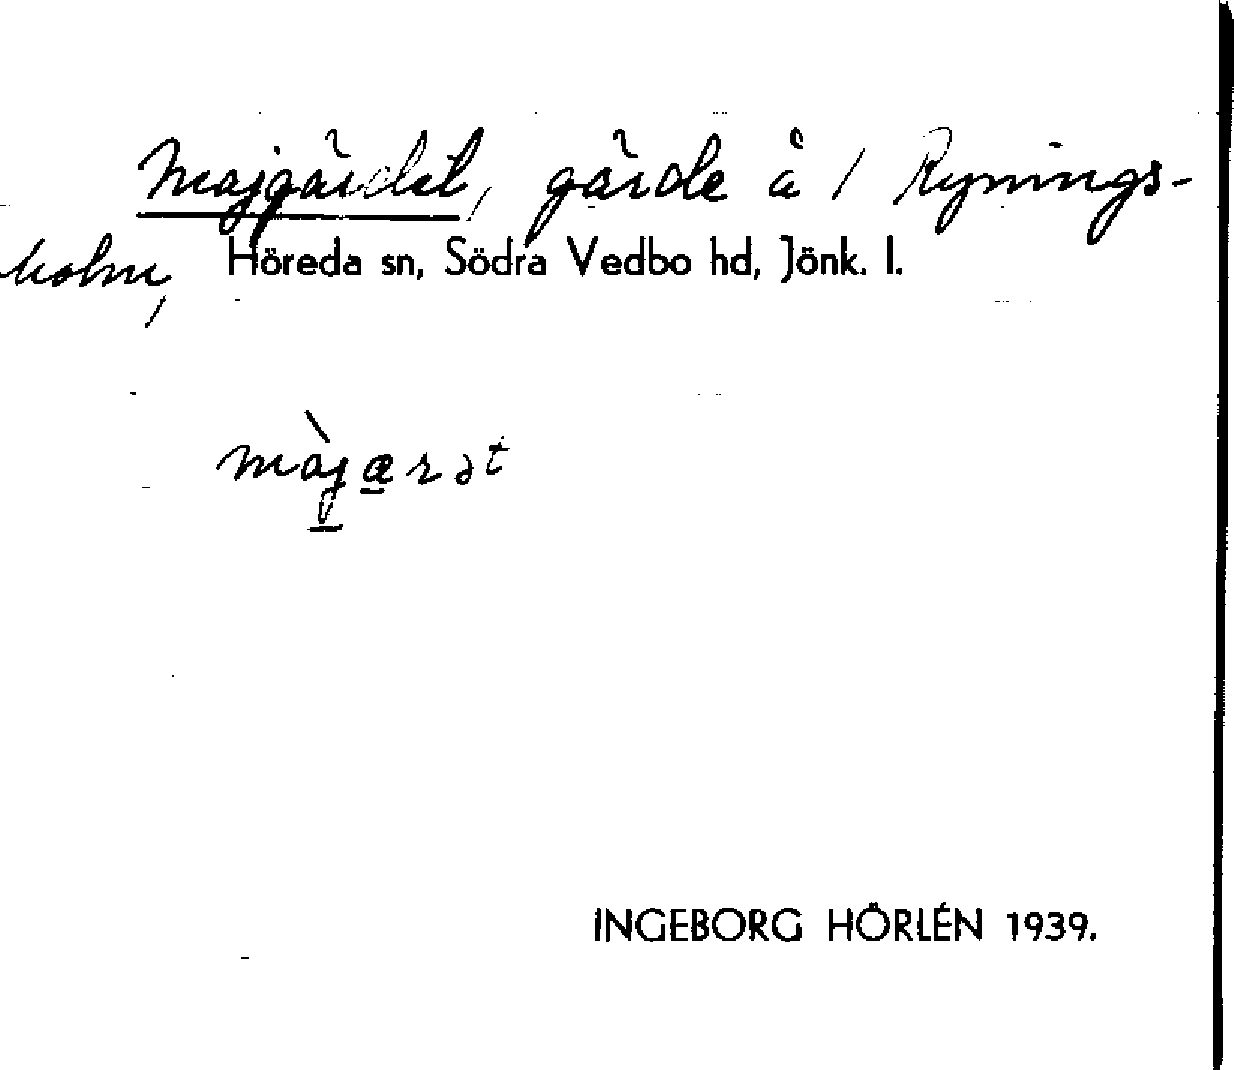 Majgärdet, gärde å / Rynings-
holm, Höreda sn, Södra Vedbo hd, Jönk. l.
INGEBORG HÖRLÉN 1939.